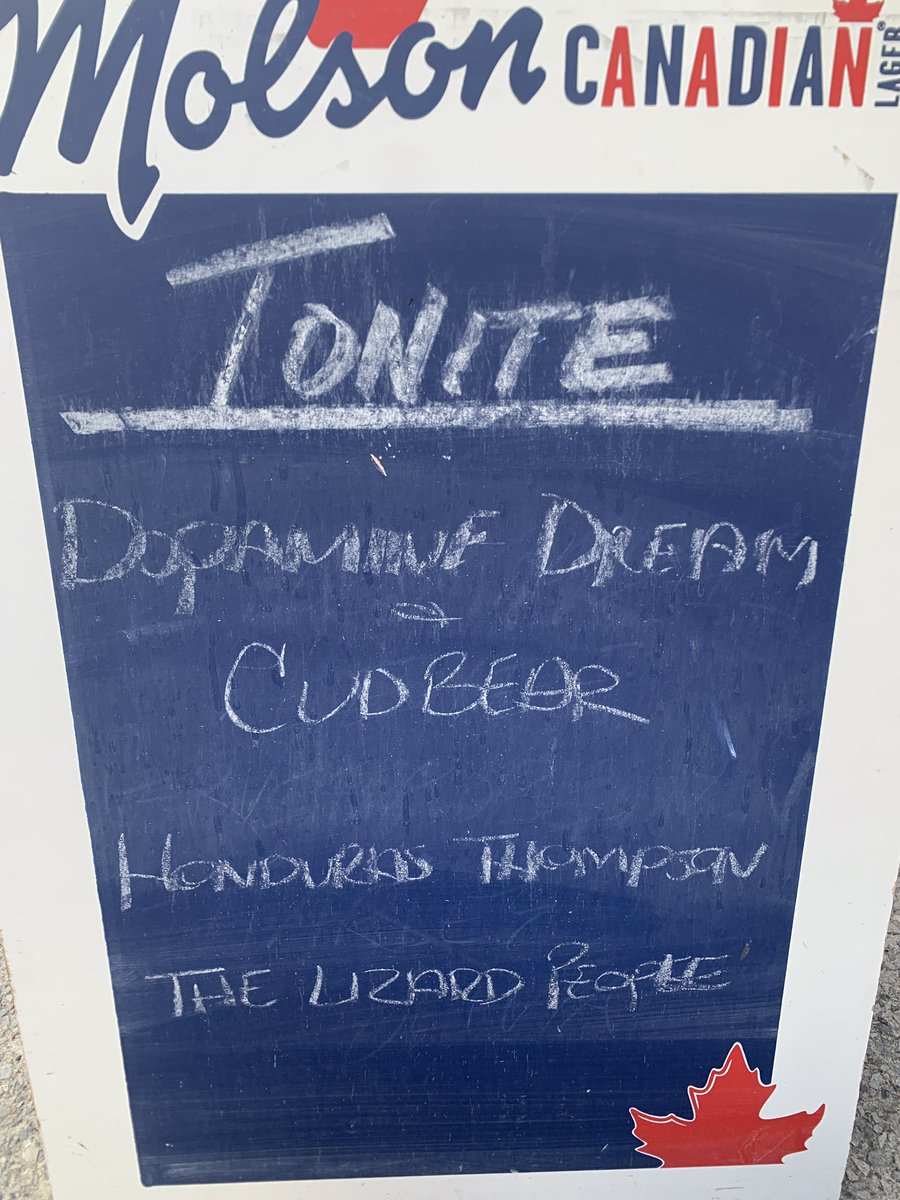 Molson CANADIAN® LAGER
TONITE
DOPAMINE DREAM
CUDBEAR
HONDURAS THOMPSON
THE LIZARD PEOPLE